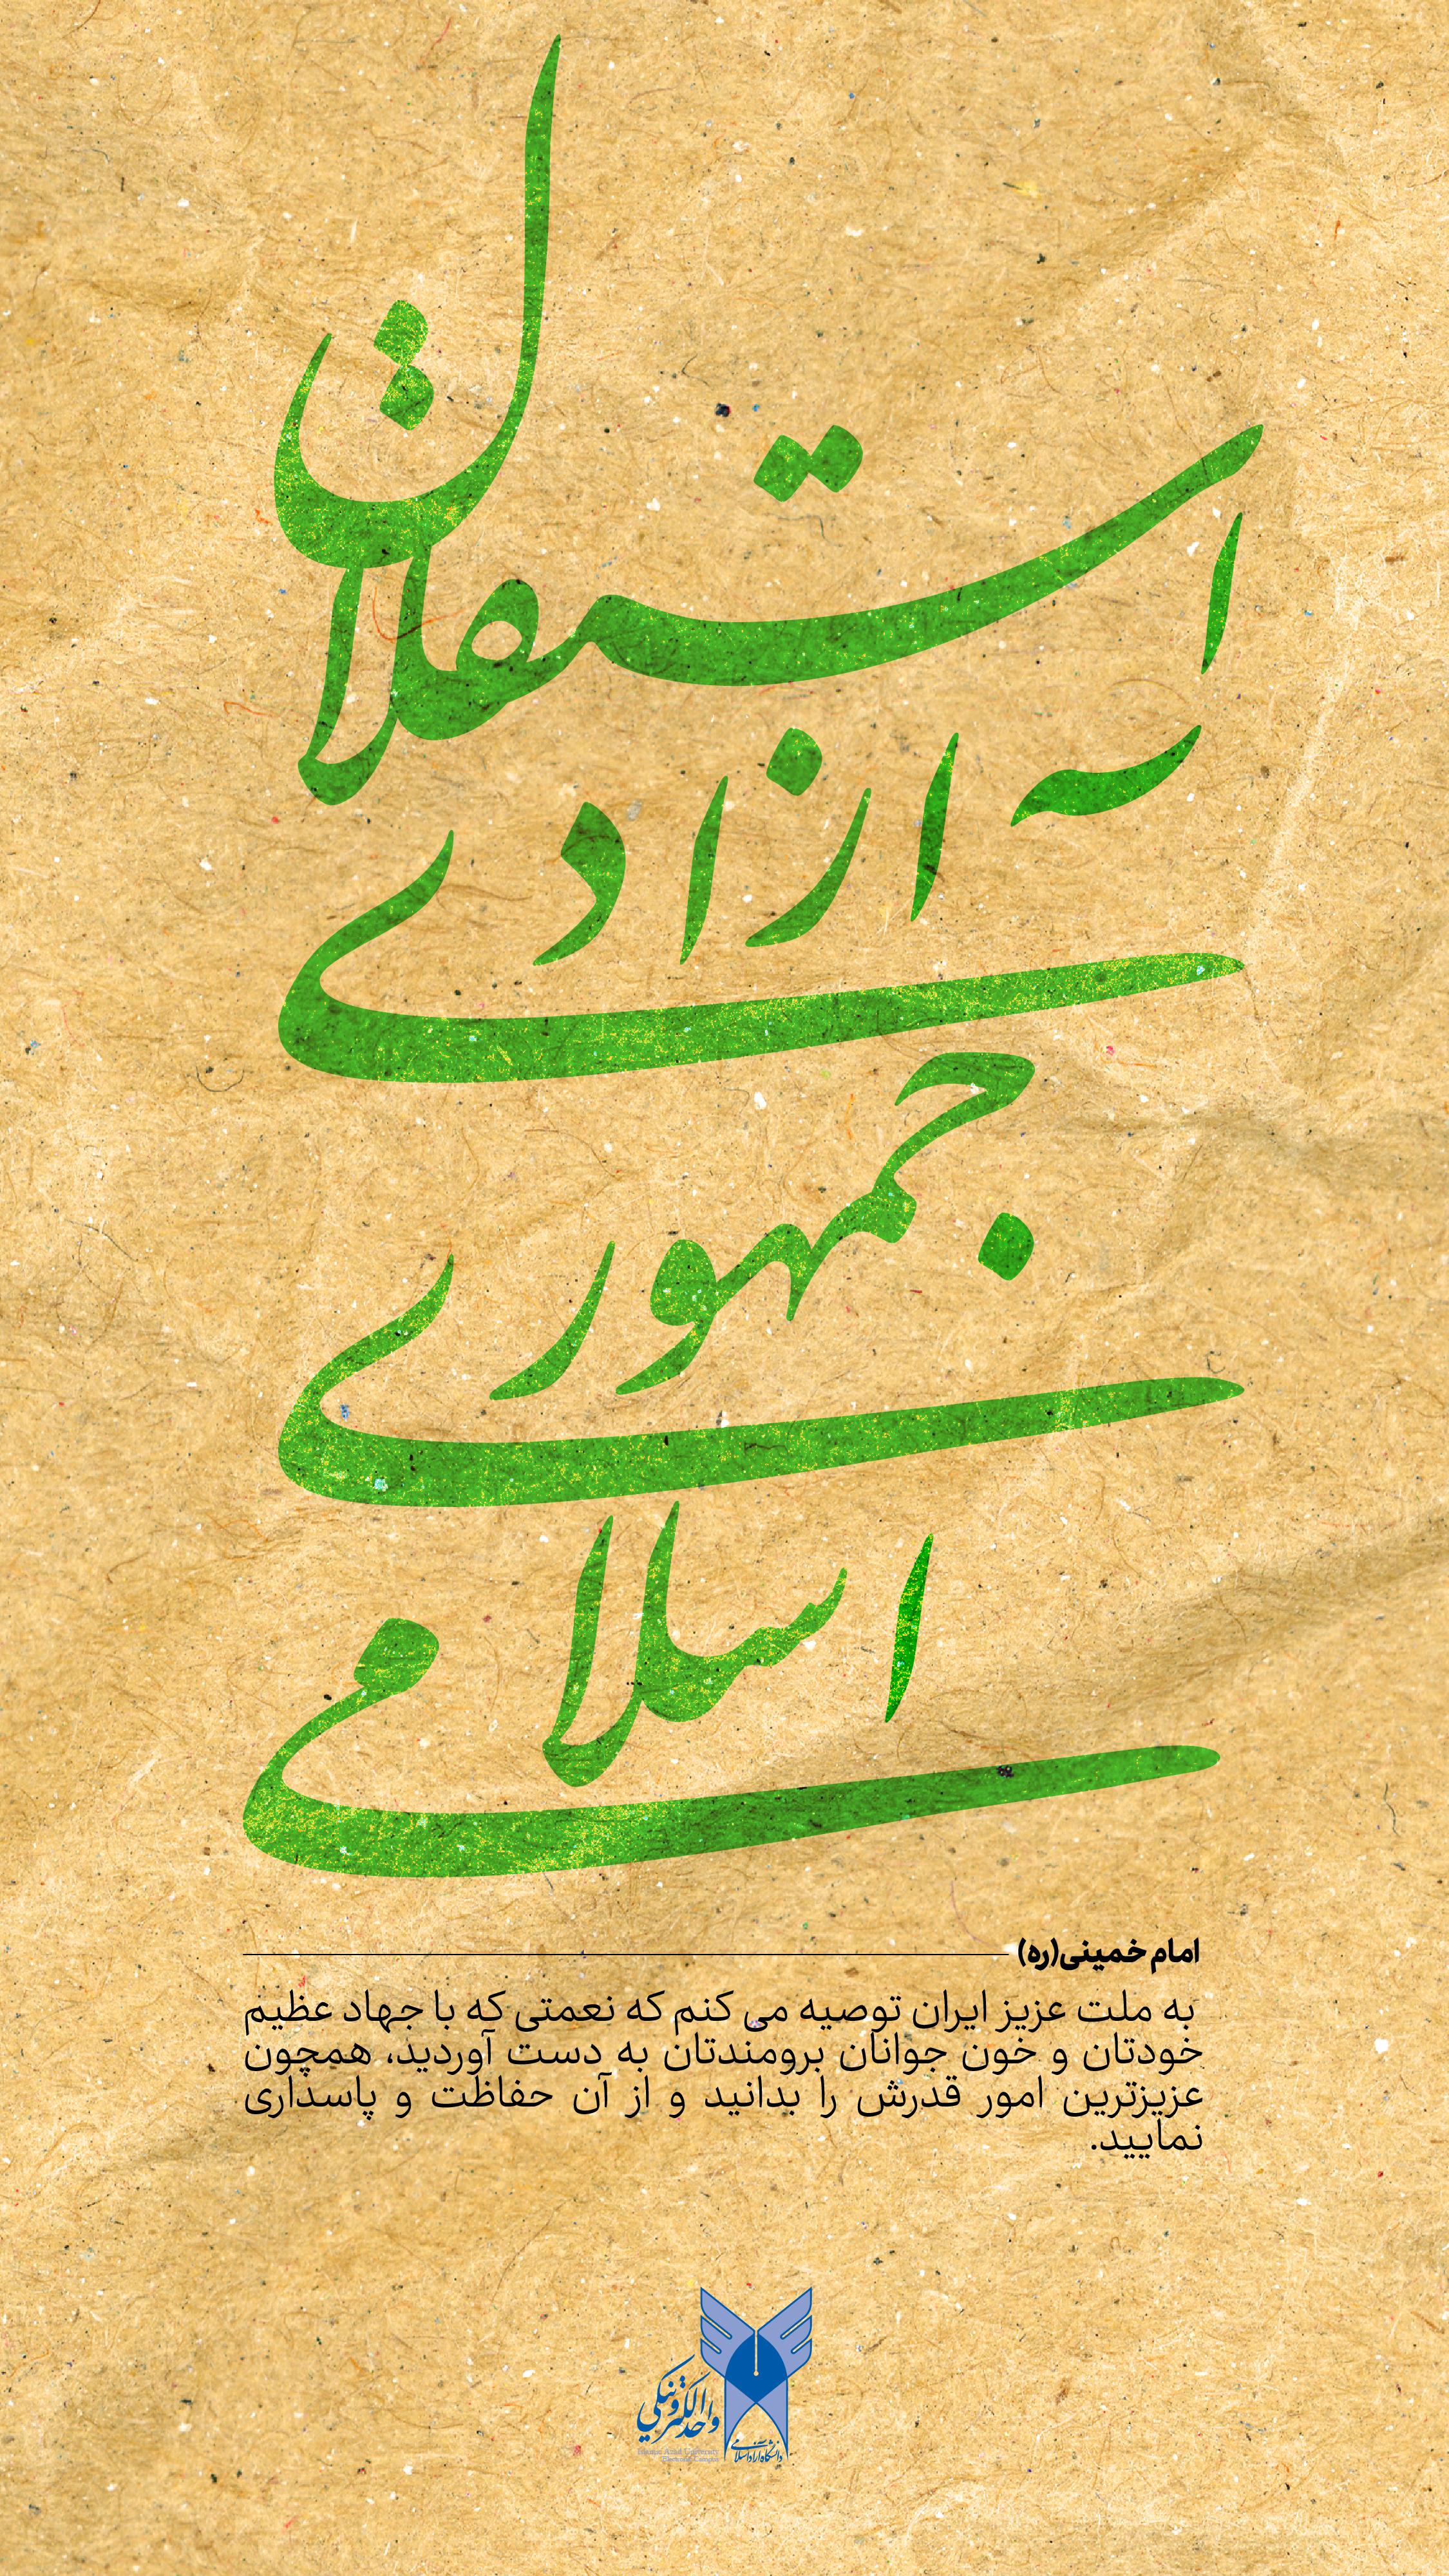 استقلال
آزادی
جمهوری
اسلامی
امام خمینی(ره)
به ملت عزیز ایران توصیه می کنم که نعمتی که با جهاد عظیم
خودتان و خون جوانان برومندتان به دست آوردید، همچون
عزیزترین امور قدرش را بدانید و از آن حفاظت و پاسداری
نمایید.
واحد الکترونیکی
دانشگاه آزاد اسلامی
Islamic Azad University
Electronic Campus